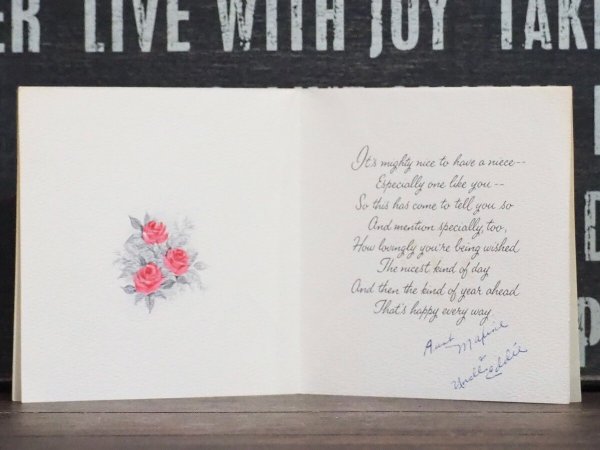 ER LIVE WITH JOY TAK
It's mighty nice to have a niece--
Especially one like you--
So this has come to tell you so
And mention specially, too,
How lovingly you're being wished
The nicest kind of day
And then the kind of year ahead
That's happy every way
Aunt Maxine
&
Uncle Eddie